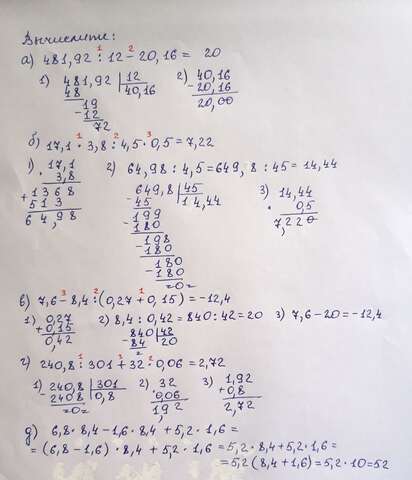 Вычислите:
а) 481,92 : 12 - 20,16 = 20
1) 481,92 | 12
48 40,16
19
- 12
72
2) 40,16
- 20,16
20,00
б) 17,1 · 3,8 : 4,5 · 0,5 = 7,22
1) 17,1
· 3,8
+ 1368
513
64,98
2) 64,98 : 4,5 = 649,8 : 45 = 14,44
- 649,8 | 45
45 14,44
- 199
- 180
- 198
- 180
180
- 180
=0=
3) 14,44
· 0,5
7,220
в) 7,6 - 8,4 : (0,27 + 0,15) = -12,4
1) 0,27
+ 0,15
0,42
2) 8,4 : 0,42 = 840 : 42 = 20
- 840 | 42
84 20
3) 7,6 - 20 = -12,4
г) 240,8 : 301 + 32 · 0,06 = 2,72
1) - 240,8 | 301
2408 0,8
=0=
2) 32
· 0,06
1,92
3) 1,92
+ 0,8
2,72
д) 6,8 · 8,4 - 1,6 · 8,4 + 5,2 · 1,6 =
= (6,8 - 1,6) · 8,4 + 5,2 · 1,6 = 5,2 · 8,4 + 5,2 · 1,6 =
= 5,2 (8,4 + 1,6) = 5,2 · 10 = 52